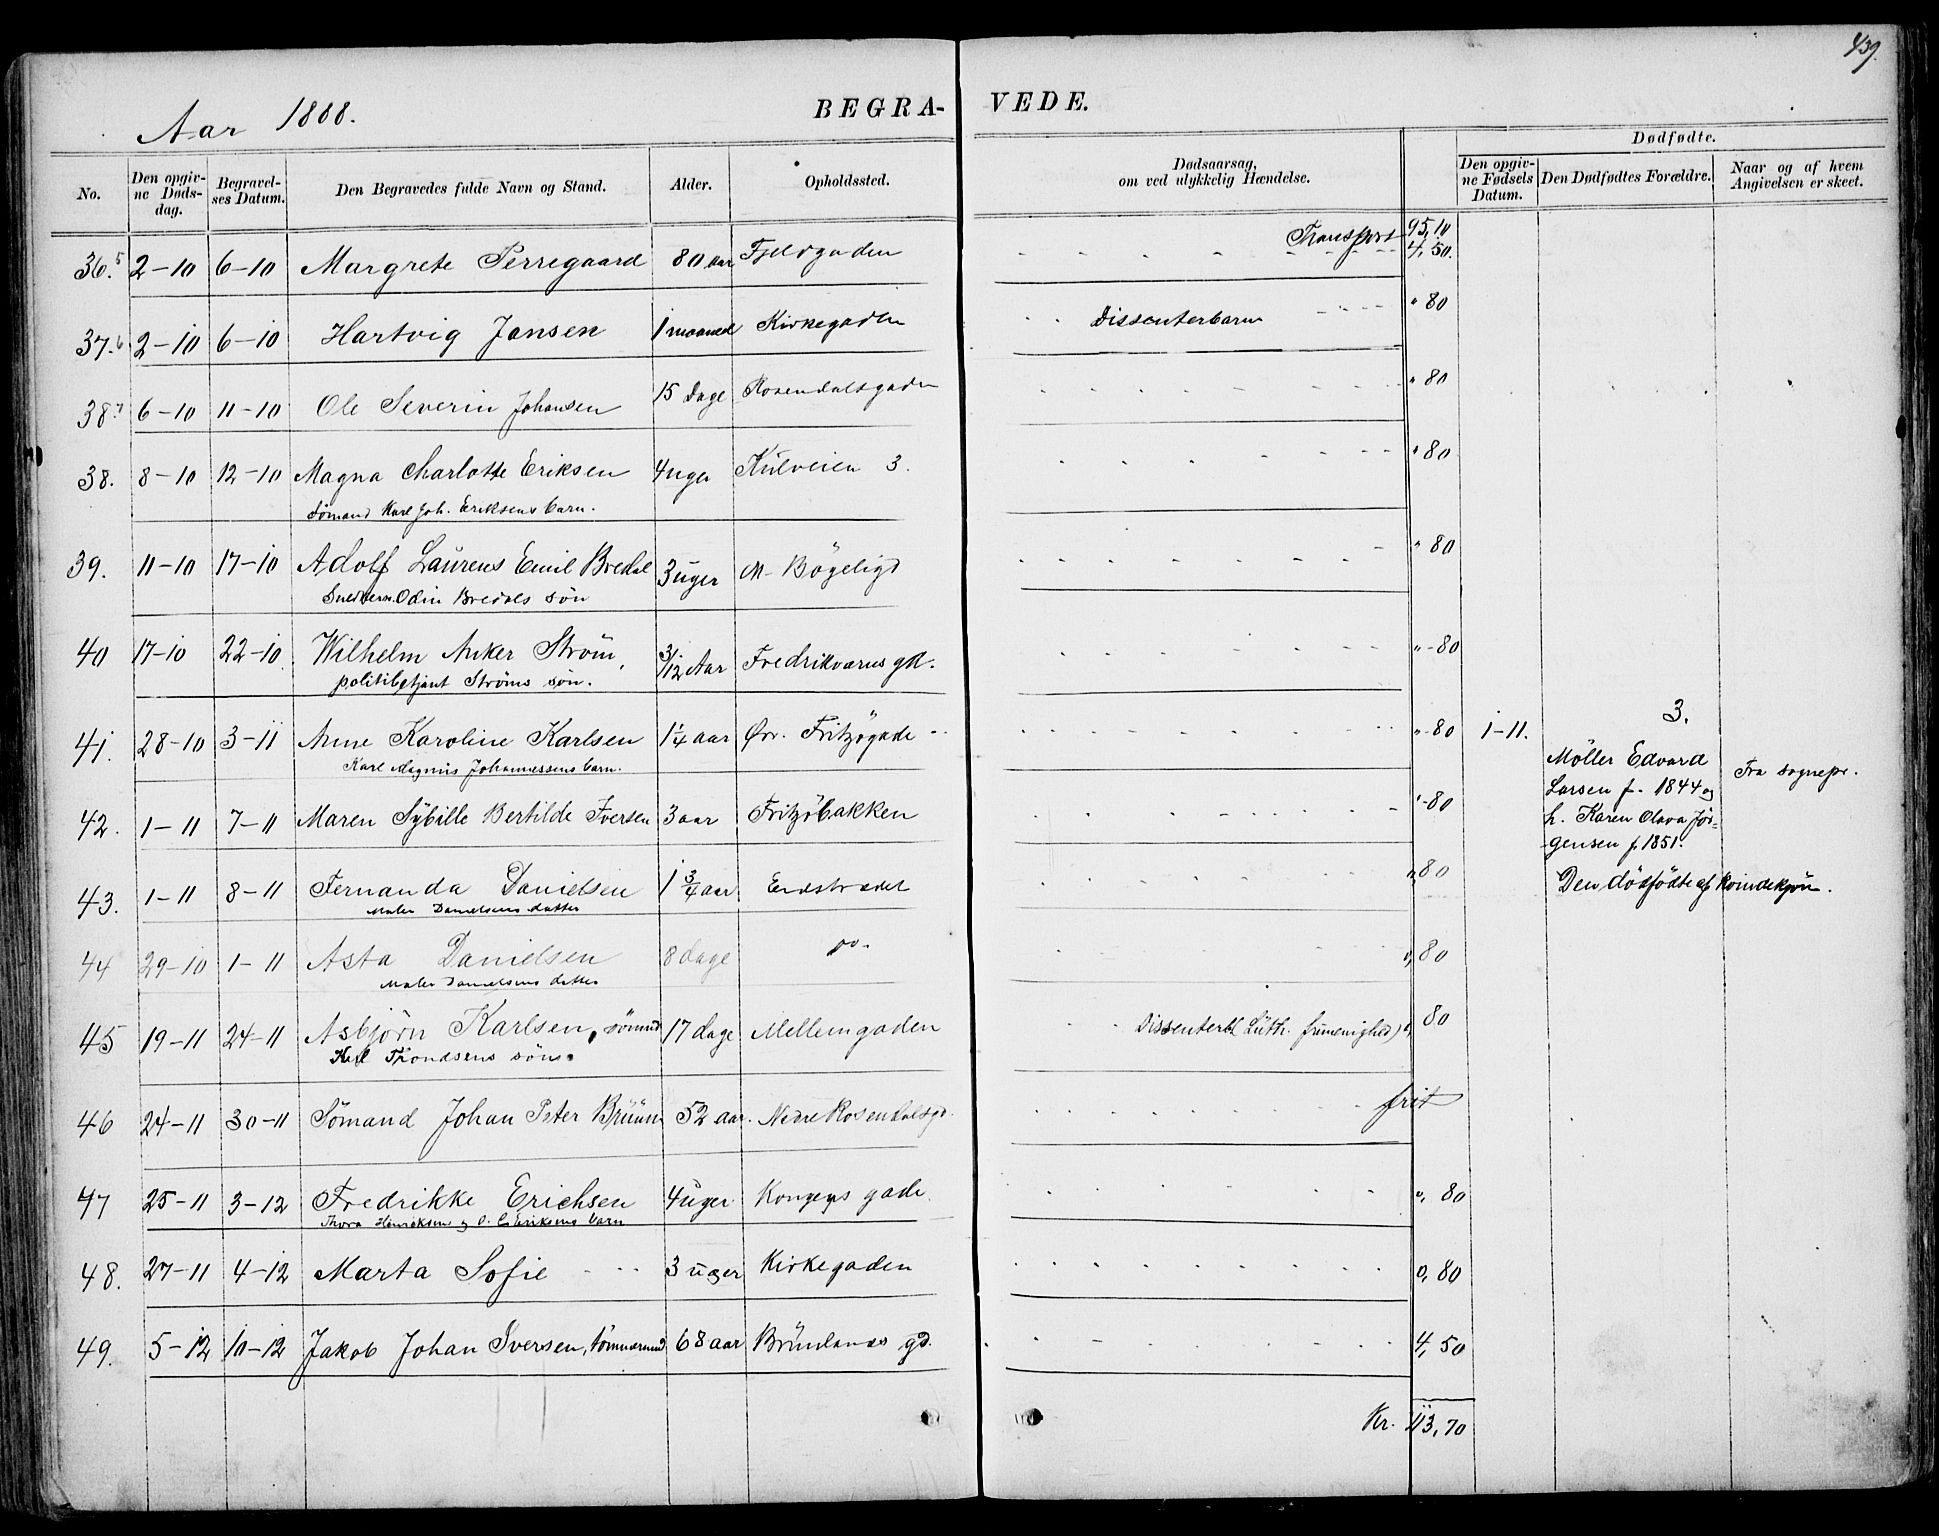 439.
Aar 1888. BEGRA- VEDE.
No. Den opgivne Dødsdag. Begravelses Datum. Den Begravedes fulde Navn og Stand. Alder. Opholdssted. Dødsaarsag, om ved ulykkelig Hændelse. Dødfødte. Den opgivne Fødsels Datum. Den Dødfødtes Forældre. Naar og af hvem Angivelsen er skeet.
Transport 95,10
36.5 2-10 6-10 Margrete Perregaard 80 aar Fjeldgaden 4,50.
37.6 2-10 6-10 Hartvig Jansen 1 maaned Kirkegaden Dissenterbarn " 80
38.7 6-10 11-10 Ole Severin Johansen 15 dage Rosendalsgaden " 80
38. 8-10 12-10 Magna Charlotte Eriksen 4 uger Kulveien 3. " 80
Sømand Karl Joh. Eriksens barn.
39. 11-10 17-10 Adolf Laurens Emil Bredal 3 uger M- Bøgeligd " 80
Snedkerm. Odin Bredals søn
40 17-10 22-10 Wilhelm Anker Strøm, 3/12 Aar Fredrikværns gd. "-80
politibetjent Strøms søn.
41. 28-10 3-11 Anne Karoline Karlsen 1 1/4 aar Øv. Fritzøgade "-80 1-11. 3.
Karl Magnus Johannessens barn.
Møller Edvard
Larsen f. 1844 og
h. Karen Olava Jör-
gensen f. 1851.
Fra sognepr.
42. 1-11 7-11 Maren Sybille Bertilde Iversen 3 aar Fritzøbakken "-80
43. 1-11 8-11 Fernanda Danielsen 1 3/4 aar Endstrædet ",80 Den dödfödte af kvindekjøn.
Maler Danielsens datter
44 29-10 1-11 Asta Danielsen 8 dage do- ", 80
Maler Danielsens datter
45 19-11 24-11 Asbjørn Karlsen, sømnd 17 dage Mellemgaden Dissenterb( Luth. frimenighed) ", 80
Karl Trondsens søn.
46 24-11 30-11 Sømand Johan Peter Bruun 52 aar. Nedre Rosendalsgd. frit
47 25-11 3-12 Fredrikke Erichsen 4 uger Kongens gade. ", 80
Thora Henriksen og O. C. Eriksens barn
48. 27-11 4-12 Marta Sofie 3 uger Kirkegaden 0, 80
49. 5-12 10-12 Jakob Johan Iversen, tømmermd 68 aar Brunlanæs gd. 4, 50
Kr. 113,70